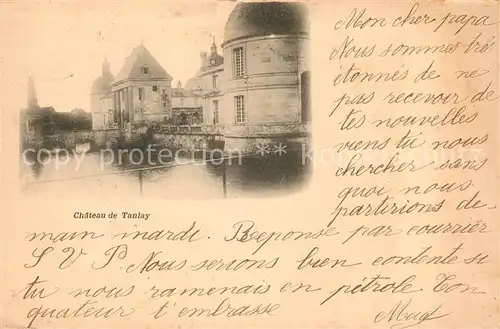 Mon cher papa
Nous sommes très
étonnés de ne
pas recevoir de
tes nouvelles
viens tu nous
chercher sans
quoi nous
partirions de-
Château de Tanlay
main mardi. Reponse par courrier
S V P. Nous serions bien contente si
tu nous ramenais en pétrole. Ton
quateur t'embrasse